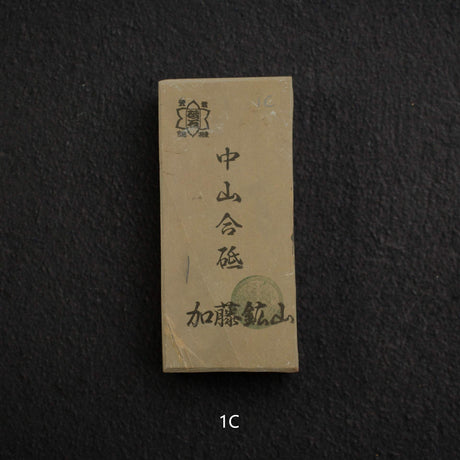 中山合砥
加藤鉱山
1C